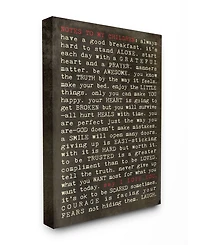 NOTES TO MY CHILDREN; always
have a good breakfast. it's
hard to stand ALONE. start
each day with a GRATEFUL
heart and a PRAYER. manners
matter. be AWESOME. you know
the TRUTH by the way it feels.
make your bed. enjoy the LITTLE
things. only you can make YOU
happy. your HEART is going to
get BROKEN but you will survive-
-all hurt HEALS with time. you
are perfect just the way you
are-GOD doesn't make mistakes.
a SMILE will open many doors.
giving up is EASY-sticking
with it is HARD but worth it.
to be TRUSTED is a greater
compliment than to be LOVED.
tell the truth. never give up
what you WANT most for what you
want today.
it's OK to be SCARED sometimes.
COURAGE is facing your
FEARS not hiding them. LAUGH